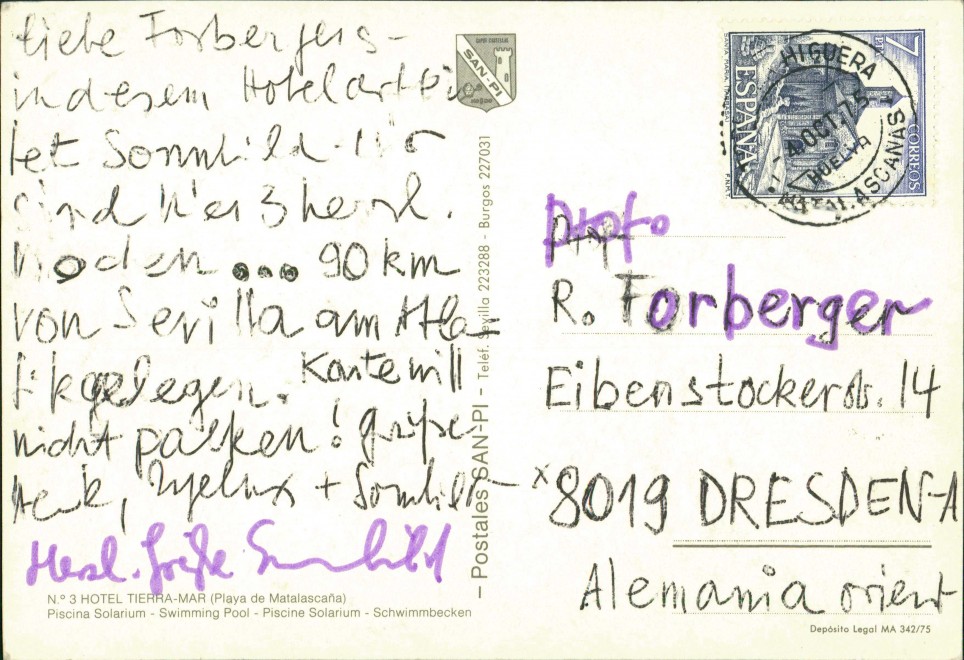 liebe Forbergers -
in diesem Hotel arbei
tet Sonnhild. Wir
sind hier 3 herrl.
Wochen ... 90 km
von Sevilla am Atla-
tik gelegen. Karte will
nicht passen! Grüße
+ Sonnhild
Herzl. Grüße Sonnhild
N.º 3 HOTEL TIERRA-MAR (Playa de Matalascaña)
Piscina Solarium - Swimming Pool - Piscine Solarium - Schwimmbecken
SAN-PI
Postales SAN-PI - Teléf. Sevilla 223288 - Burgos 227031
7 PTA
ESPAÑA
CORREOS
HIGUERA
-4 OCT. 75
HUELVA
MATALASCAÑAS
R. Forberger
Eibenstockerstr. 14
x 8019 DRESDEN-A
Alemania orient
Depósito Legal MA 342/75